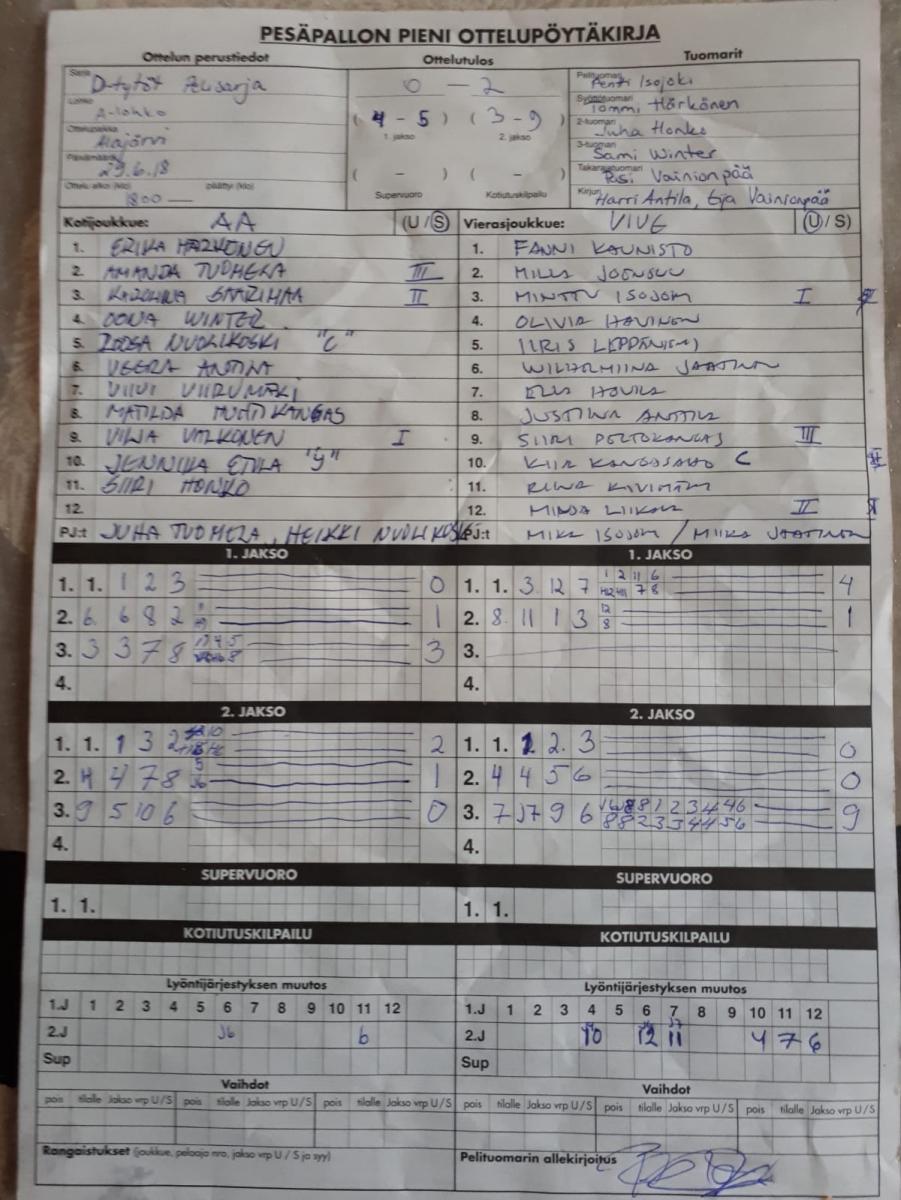 PESÄPALLON PIENI OTTELUPÖYTÄKIRJA
Ottelun perustiedot
Sarja D-tytöt Aluesarja
Lohko A-lohko
Ottelupaikka Alajärvi
Päivämäärä 29.6.18
Ottelu alkoi (klo) 1800 päättyi (klo)
Ottelutulos
0 – 2
( 4 – 5 ) ( 3 – 9 )
1. jakso 2. jakso
( – ) ( – )
Supervuoro Kotiutuskilpailu
Tuomarit
Pelituomari Pentti Isojoki
Syöttötuomari Tommi Härkönen
2-tuomari Juha Honko
3-tuomari Sami Winter
Takarajatuomari Pasi Vainionpää
Kirjuri Harri Antila, Eija Vainionpää
Kotijoukkue: AA (U/S)
1. ERIKA HÄRKÖNEN
2. AMANDA TUOMELA III
3. KAROLIINA SAARIMAA II
4. OONA WINTER
5. ROOSA NUOLIKOSKI "C"
6. VEERA ANTILA
7. VIIVI VIIRUMÄKI
8. MATILDA HUHTIKANGAS
9. VILJA VALKONEN I
10. JENNIKA ETULA "J"
11. SIIRI HONKO
12.
PJ:t JUHA TUOMELA, HEIKKI NUOLIKOSKI
Vierasjoukkue: VIVE (U/S)
1. FANNI KAUNISTO
2. MILLA JOENSUU
3. MINTTU ISOJOKI I
4. OLIVIA
5. IIRIS
6. WILHELMIINA JAATINEN
7. ELLA
8. JUSTIINA ANTTILA
9. SIIRI PELTOKANGAS III
10. KIIA KANGASAHO C
11. KIVIMÄKI
12. MINJA II
PJ:t MIKA ISOJOKI / MIIKA JAATINEN
1. JAKSO
1. 1. 1 2 3 0
2. 6 6 8 2 1
3. 3 3 7 8 3
4.
1. JAKSO
1. 1. 3 12 7 4
2. 8 11 1 3 12 8 1
3.
4.
2. JAKSO
1. 1. 1 3 2 2
2. 4 4 7 8 1
3. 9 5 10 6 0
4.
2. JAKSO
1. 1. 2 2. 3 0
2. 4 4 5 6 0
3. 7 J7 9 6 9
4.
SUPERVUORO
1. 1.
SUPERVUORO
1. 1.
KOTIUTUSKILPAILU
KOTIUTUSKILPAILU
Lyöntijärjestyksen muutos
1.J 1 2 3 4 5 6 7 8 9 10 11 12
2.J J6 6
Sup
Lyöntijärjestyksen muutos
1.J 1 2 3 4 5 6 7 8 9 10 11 12
2.J 10 12 11 4 7 6
Sup
Vaihdot
pois tilalle Jakso vrp U/S pois tilalle Jakso vrp U/S pois tilalle Jakso vrp U/S
Vaihdot
pois tilalle Jakso vrp U/S pois tilalle Jakso vrp U/S pois tilalle Jakso vrp U/S
Rangaistukset (joukkue, pelaaja nro, jakso vrp U / S ja syy)
Pelituomarin allekirjoitus